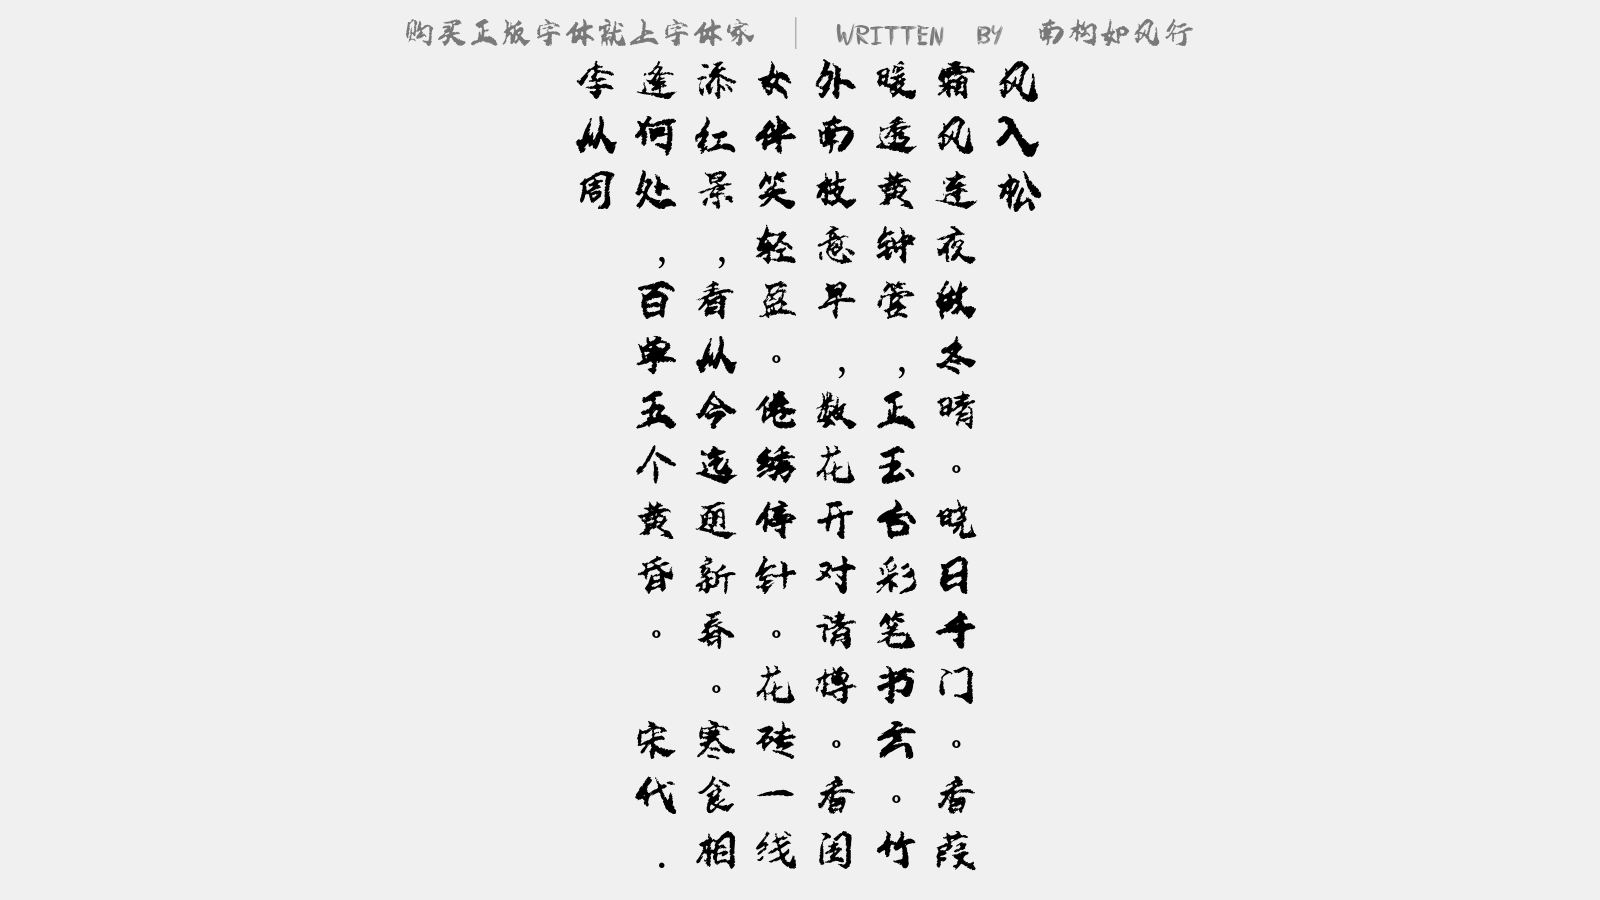 购买正版字体就上字体家 | WRITTEN BY 南构如风行
风入松
霜风连夜做冬晴。晓日千门。香葭
暖透黄钟管，正玉台彩笔书云。竹
外南枝意早，数花开对清樽。香闺
女伴笑轻盈。倦绣停针。花砖一线
添红景，看从今迤逦新春。寒食相
逢何处，百单五个黄昏。 宋代.
李从周